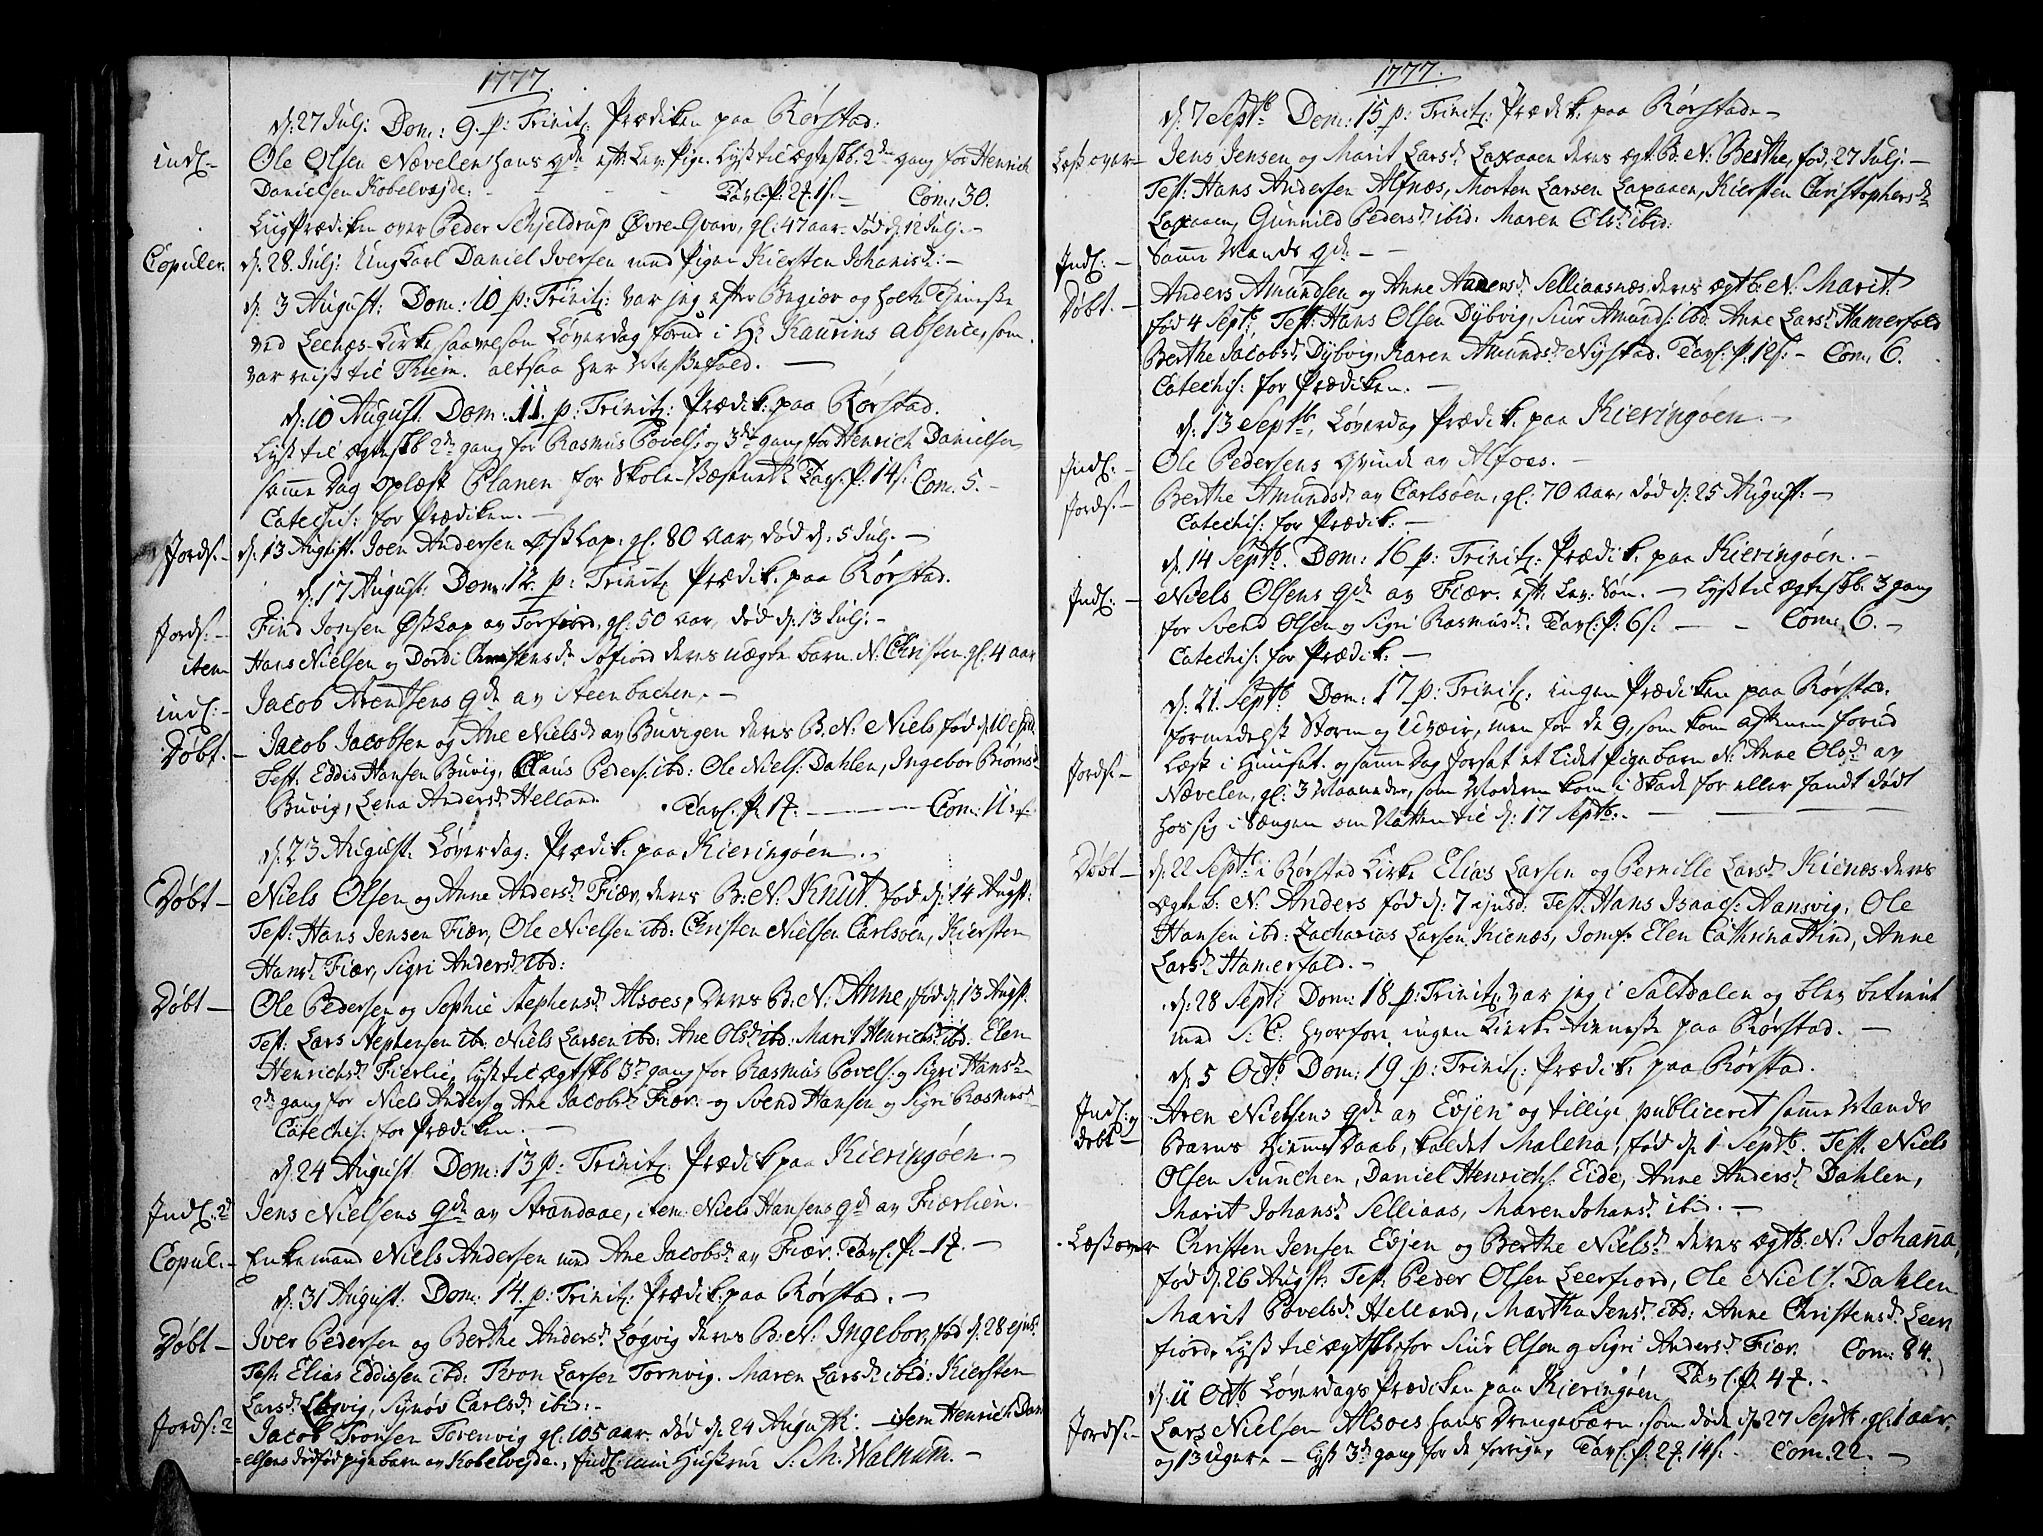 1777.
d: 27 Julj: Dom: 9. p: Trinit: Prædiken paa Rørstad:
indl: – Ole Olsen Nævelen hans qde eft: Lev: Pige. Lyst til ægtesk: 2de gang for Henrich
Danielsen Kobelvejde: – – – Tavl: p: 2 1s – Com: 30.
Liig Prædiken over Peder Schjeldrup Øvre Qvarv, gl: 47 aar død d: 12 Julj. –
Copuler. d: 28. Julj: Ung Karl Daniel Iversen med Pigen Kiersten Johanisd: –
d: 3 August: Dom: 10 p: Trinit: var jeg efter Begiær og holt Tieneste
ved Leenæs-Kirke saavelsom Løverdag forud i Hr Kaurins absence, som
var reist til Thiem. altsaa her Messefald. –
d: 10 August. Dom: 11. p: Trinit: Prædik: paa Rørstad.
Lyst til ægtesk 2de gang for Rasmus Povels: og 3de gang for Henrich Danielsen
samme Dag oplæst Planen for Skole-Væsenet Tavl: p: 14s: Com. 5. –
Catechis: for Prædiken. –
Jords: – d: 13 August. Joen Andersen Østlap: gl: 80 aar, død d: 5 Julj. –
d: 17 August: Dom: 12. p: Trinit: Prædik: paa Rørstad.
Jords: – Find Jonsen Østlap av Torfiord, gl: 50 aar, død d: 13 Julj: –
item Hans Nielsen og Dordi Christensd: Søfiord deres uægte barn N: Christen gl: 4 aar
indl: – Jacob Arentsens qde av Steenbachen. –
Døbt. – Jacob Jacobsen og Ane Nielsd av Buvigen deres B: N: Niels fød d: 10
Test: Eddis Hansen Buvig, Claus Peders: ibd: Ole Niels: Dahlen, Ingebor Biørnsd
Buvig, Lena Andersd Helland. Tavl: p: 1 – – Com: 11
d: 23 August. Løverdag: Prædik: paa Kieringøen. –
Døbt – Niels Olsen og Anne Andersd Fiær, deres B: N: Knut fød d: 14 Augst:
Test: Hans Jensen Fiær, Ole Nielsen ibd: Christen Nielsen Carlsøen, Kiersten
Hansd: Fiær, Sigri Andersd: ibd:
Døbt – Ole Pedersen og Sophie Stephensd Alsoes, deres B: N: Anne, fød d: 13 Augst.
Test: Lars Stephensen ibd: Niels Larsen ibd: Ane Olsd ibd: Marit Henrichsd ibd: Elen
Henrichsd Fierlie, Lyst til ægtsk 3de gang for Rasmus Povels: og Sigri Hansd
2de gang for Niels Anders: og Ane Jacobsd: Fiær. og Svend Hansen og Sigri Rasmusd
Catechis: for Prædiken. –
d: 24 August Dom: 13 p: Trinit: Prædik paa Kieringøen –
Indl: 2de Jens Nielsens qde av Strandaae, item Niels Hansens qde av Fiærlien.
Copul: – Enkemand Niels Andersen med Ane Jacobsd av Fiær: Tavl: p: 1 –
d: 31 August: Dom: 14. p: Trinit: Prædik: paa Rørstad. –
Døbt – Iver Pedersen og Berthe Andersd: Løgvig deres B: N: Ingebor, fød d: 28 ejusd:
Test: Elias Eddissen ibd: Tron Larsen Tornvig. Maren Larsd: ibid: Kiersten
Larsd: Løgvig, Synøv Carlsd: ibid: –
Jords: 2 Jacob Tronsen Torenvig gl: 105 aar. død d: 24 August: – item Henrich Dani
elsens dødfød pigebarn av Kobelvejde., Indl: min Hustrue S: M: Walnum. –
1777.
d: 7 Septb Dom: 15 p: Trinit: Prædik: paa Rørstad. –
Læst over – Jens Jensen og Marit Larsd: Laxaaen deres ægt: B: N: Berthe, fød: 27 Julj: –
Test: Hans Andersen Alfnæs, Morten Larsen Laxaaen, Kiersten Christophersd
Laxaaen, Gunnild Pedersd: ibid: Maren Olsd: ibid:
Indl: – Samme Mands qde –
Døbt. – Anders Amundsen og Anne Arensd: Selliaasnæs, deres ægtb: N: Marit
fød 4 Septb: Test: Hans Olsen Dybvig, Siur Amunds: ibd: Anne Larsd: Hamerfald
Berthe Jacobsd: Dybvig, Karen Amundsd: Nystad. Tavl: p: 12s: – Com: 6.
Catechis: for Prædiken. –
d: 13 Septb., Løverdag Prædik: paa Kieringøen. –
Indl: – Ole Pedersens qvinde av Alfoes. –
Jords: – Berthe Amundsd: av Carlsøen, gl: 70 aar, død d: 25 August: –
Catechis: for Prædik: –
d. 14 Septb. Dom: 16 p: Trinit: Prædik. paa Kieringøen. –
Indl: – Niels Olsens qde av Fiær. eft: Lev: Søn. – Lyst til ægtesk: 3 gang
for Svend Olsen og Sigri Rasmusd: Tavl: p: 6s: – – Com: 6. –
Catechis: for Prædik: –
d: 21. Septb. Dom: 17 p: Trinit: ingen Prædiken paa Rørstad.
formedelst Storm og Uvæir, men for de 9, som kom aftenen forud
Læst i Huuset. og samme Dag
Jords: – forsat et lidet Pigebarn N: Anne Olsd av
Nævelen, gl: 3 Maaneder, som Moderen kom i Skade for eller fandt dødt
hos sig i Sængen om Natten til d: 17 Septb: – –
Døbt – d: 22 Septb: i Rørstad Kirke Elias Larsen og Pernille Larsd: Kienæs deres
ægte b: N: Anders fød d: 7 ejusd: Test: Hans Isaacs: Aansvig, Ole
Hansen ibd: Zacharias Larsen, Kienæs, Jomfr Elen Cathrina Hind, Anne
Larsd: Hamerfald. –
d: 28 Sept: Dom: 18 p: Trinit: var jeg i Saltdalen og blev betient
med S: C: hvorfore ingen Kirke-tieneste paa Rørstad. –
d: 5 Octb Dom: 19 p: Trinit: Prædik: paa Rørstad.
Indl: og Aren Nielsens qde av Evjen og tillige publiceret samme Mands
døbt – Barns Hiemme Daab, kaldet Malena, fød d: 1 Septb. Test. Niels
Olsen Kunchen, Daniel Henrichs: Eide, Anne Andersd: Dahlen,
Marit Johansd: Selliaas, Maren Johansd: ibid. –
Læst over Christen Jensen Evjen og Berthe Nielsd: deres ægtb: N: Johanna,
fød d: 26 Augst: Test: Peder Olsen Leerfiord, Ole Niels: Dahlen
Marit Povelsd: Helland, Martha Jensd: ibd: Anne Christensd: Leer
fiord, Lyst til ægtsk: for Siur Olsen og Sigri Andersd: Fiær. Com: 84.
d: 11 Octb Løverdags Prædiken paa Kieringøen Tavl: p: 4 –
Jords: – Lars Nielsen Alsoes hans Drengebarn, som døde d: 27 Septb. gl: 1 aar.
og 13 uger. – Lyst 3de gang for de forrige, Tavl: p: 2 14s: – Com: 22. –